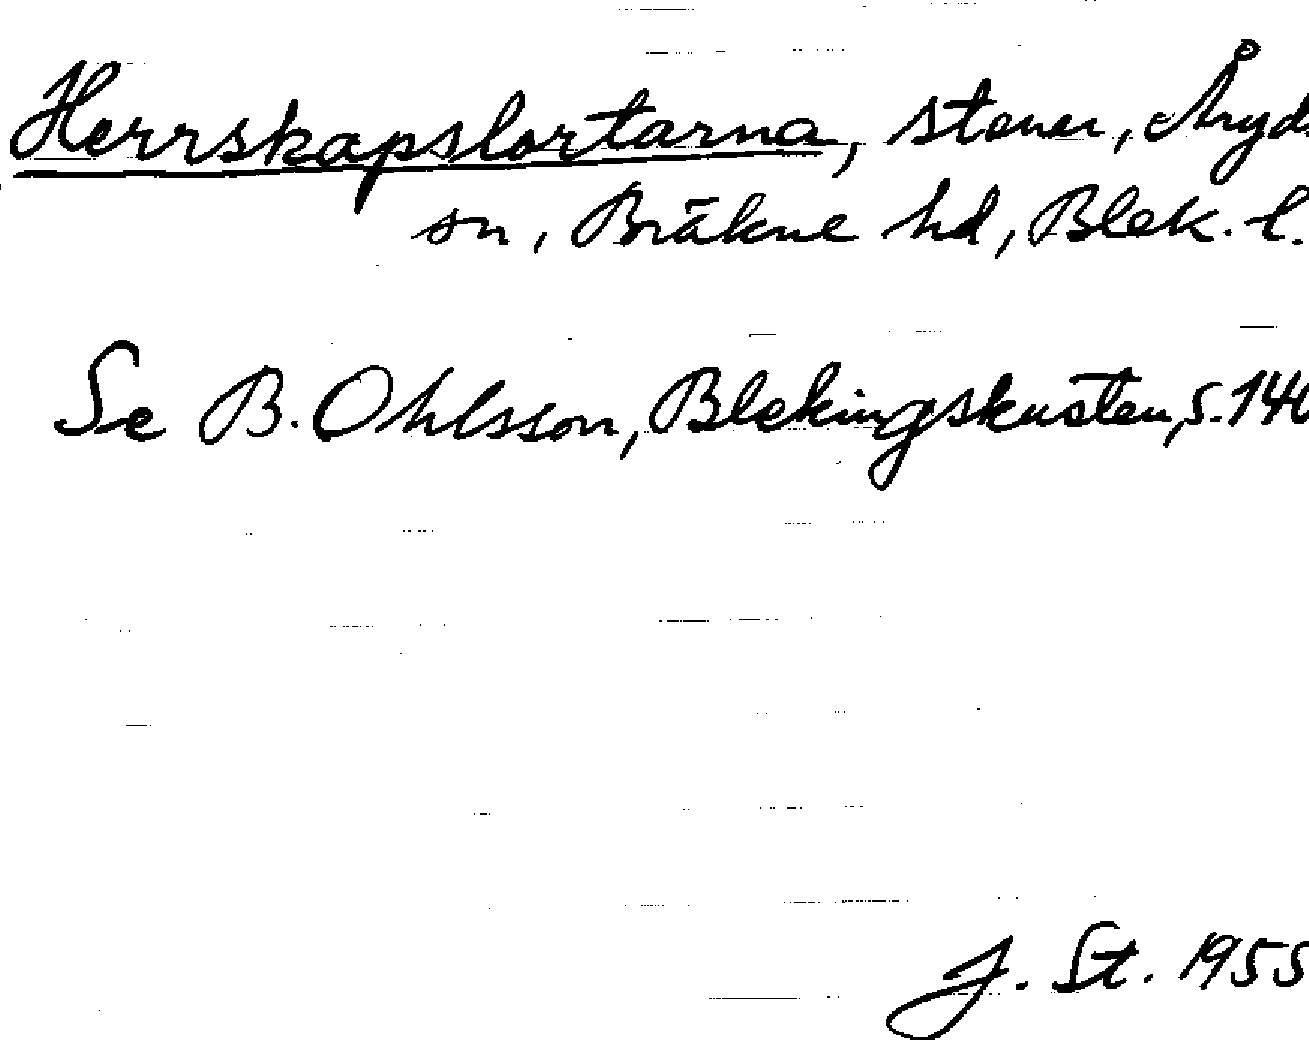 Herrskapslortarna, stenar, Åryds
sn, Bräkne hd, Blek. l.
Se B. Ohlsson, Blekingskusten, s. 140
J. St. 1955